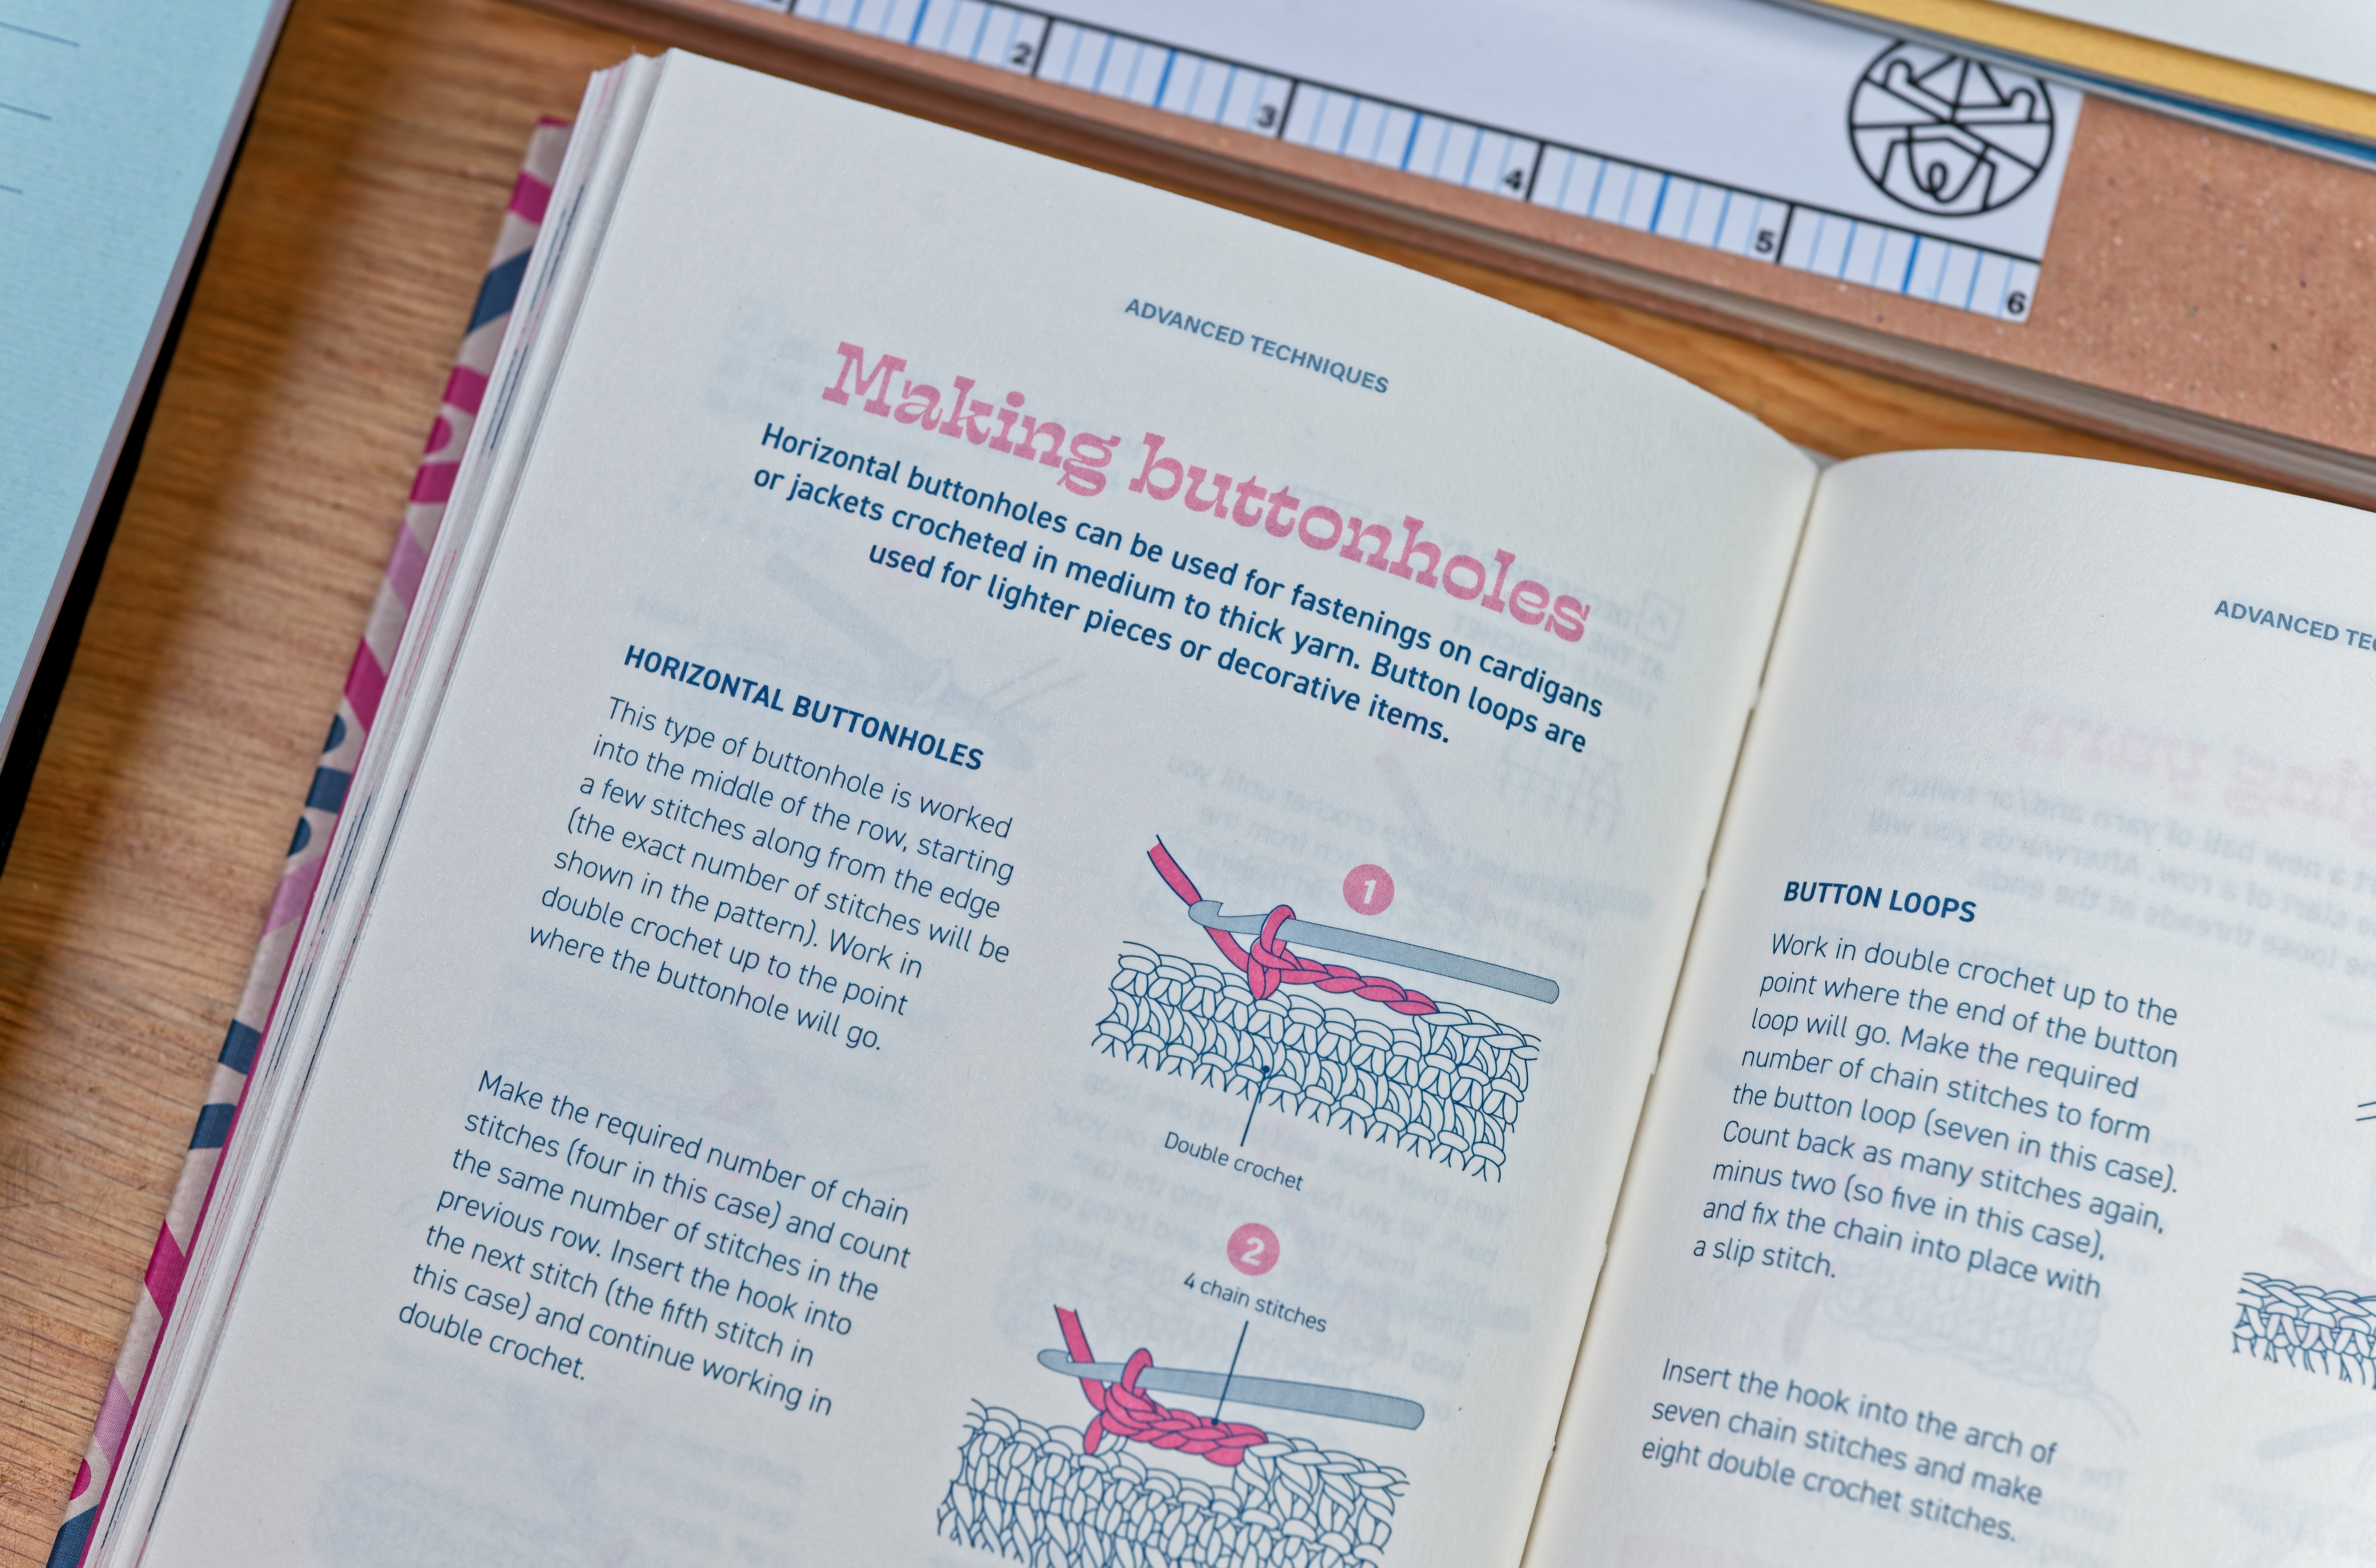 2
3
4
5
6
ADVANCED TECHNIQUES
Making buttonholes
Horizontal buttonholes can be used for fastenings on cardigans
or jackets crocheted in medium to thick yarn. Button loops are
used for lighter pieces or decorative items.
HORIZONTAL BUTTONHOLES
This type of buttonhole is worked
into the middle of the row, starting
a few stitches along from the edge
(the exact number of stitches will be
shown in the pattern). Work in
double crochet up to the point
where the buttonhole will go.
1
Double crochet
Make the required number of chain
stitches (four in this case) and count
the same number of stitches in the
previous row. Insert the hook into
the next stitch (the fifth stitch in
this case) and continue working in
double crochet.
2
4 chain stitches
ADVANCED
BUTTON LOOPS
Work in double crochet up to the
point where the end of the button
loop will go. Make the required
number of chain stitches to form
the button loop (seven in this case).
Count back as many stitches again,
minus two (so five in this case),
and fix the chain into place with
a slip stitch.
Insert the hook into the arch of
seven chain stitches and make
eight double crochet stitches.